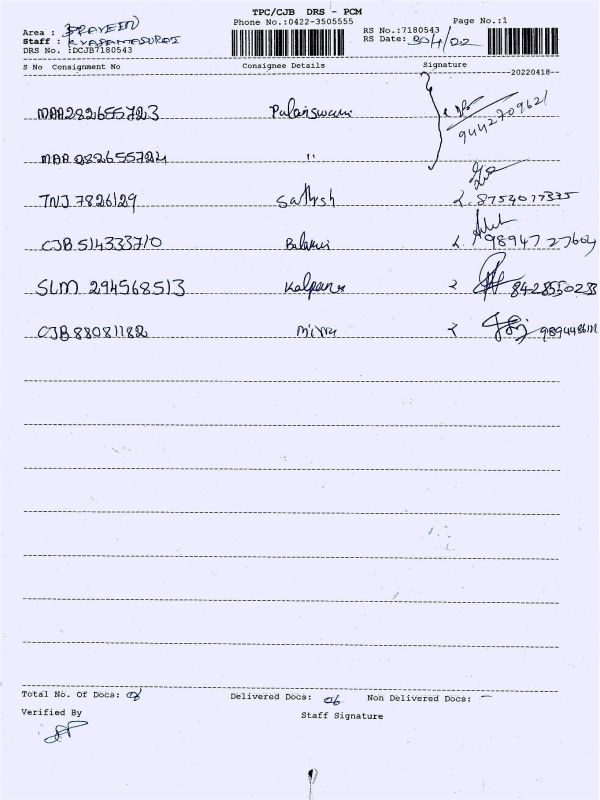 TPC/CJB DRS - PCM
Area : PRAVEEN Phone No.:0422-3505555 Page No.:1
Staff : RS No.:7180543
DRS No. :DCJB7180543 RS Date: 30/4/22
S No Consignment No Consignee Details Signature
20220418
MAA282655723 Palaniswami 9442709621
MAA 282655724 "
TNJ 7826129 Sathish 8754077335
CJB 514333710 98947 27604
SLM 294568513 Kalpana 8428550238
CJB 88081182
Total No. Of Docs: 06 Delivered Docs: 06 Non Delivered Docs: -
Verified By Staff Signature